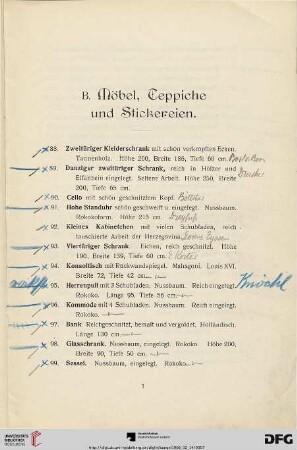 B. Möbel, Teppiche
und Stickereien.
88. Zweitüriger Kleiderschrank mit schön verkropften Ecken.
Tannenholz. Höhe 200, Breite 186, Tiefe 60 cm.
89. Danziger zweitüriger Schrank, reich in Hölzer und
Elfenbein eingelegt. Seltene Arbeit. Höhe 250, Breite
200, Tiefe 65 cm.
90. Cello mit schön geschnitztem Kopf.
91. Hohe Standuhr schön geschweift u. eingelegt. Nussbaum.
Rokokoform. Höhe 215 cm.
92. Kleines Kabinetchen mit vielen Schubladen, reich
intarsierte Arbeit der Herzegowina.
93. Viertüriger Schrank. Eichen, reich geschnitzt. Höhe
190, Breite 139, Tiefe 60 cm.
94. Konsoltisch mit Rückwandspiegel. Mahagoni. Louis XVI.
Breite 72, Tiefe 42 cm.
95. Herrenpult mit 3 Schubladen. Nussbaum. Reich eingelegt.
Rokoko. Länge 95, Tiefe 56 cm.
96. Kommode mit 4 Schubladen. Nussbaum. Reich eingelegt.
Rokoko.
97. Bank. Reich geschnitzt, bemalt und vergoldet. Holländisch.
Länge 130 cm.
98. Glasschrank. Nussbaum, eingelegt. Rokoko. Höhe 200,
Breite 90, Tiefe 50 cm.
99. Sessel. Nussbaum, eingelegt. Rokoko.
UNIVERSITÄTS-
BIBLIOTHEK
HEIDELBERG
DFG